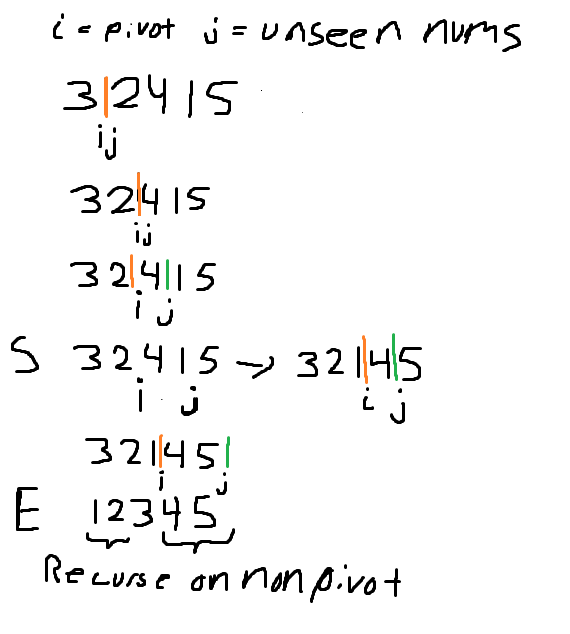 i = pivot j = unseen nums
3|2415
ij
32|415
ij
32|4|15
i j
S 32415 -> 321|4|5
i j i j
321|45|
i j
E 12345
Recurse on non pivot